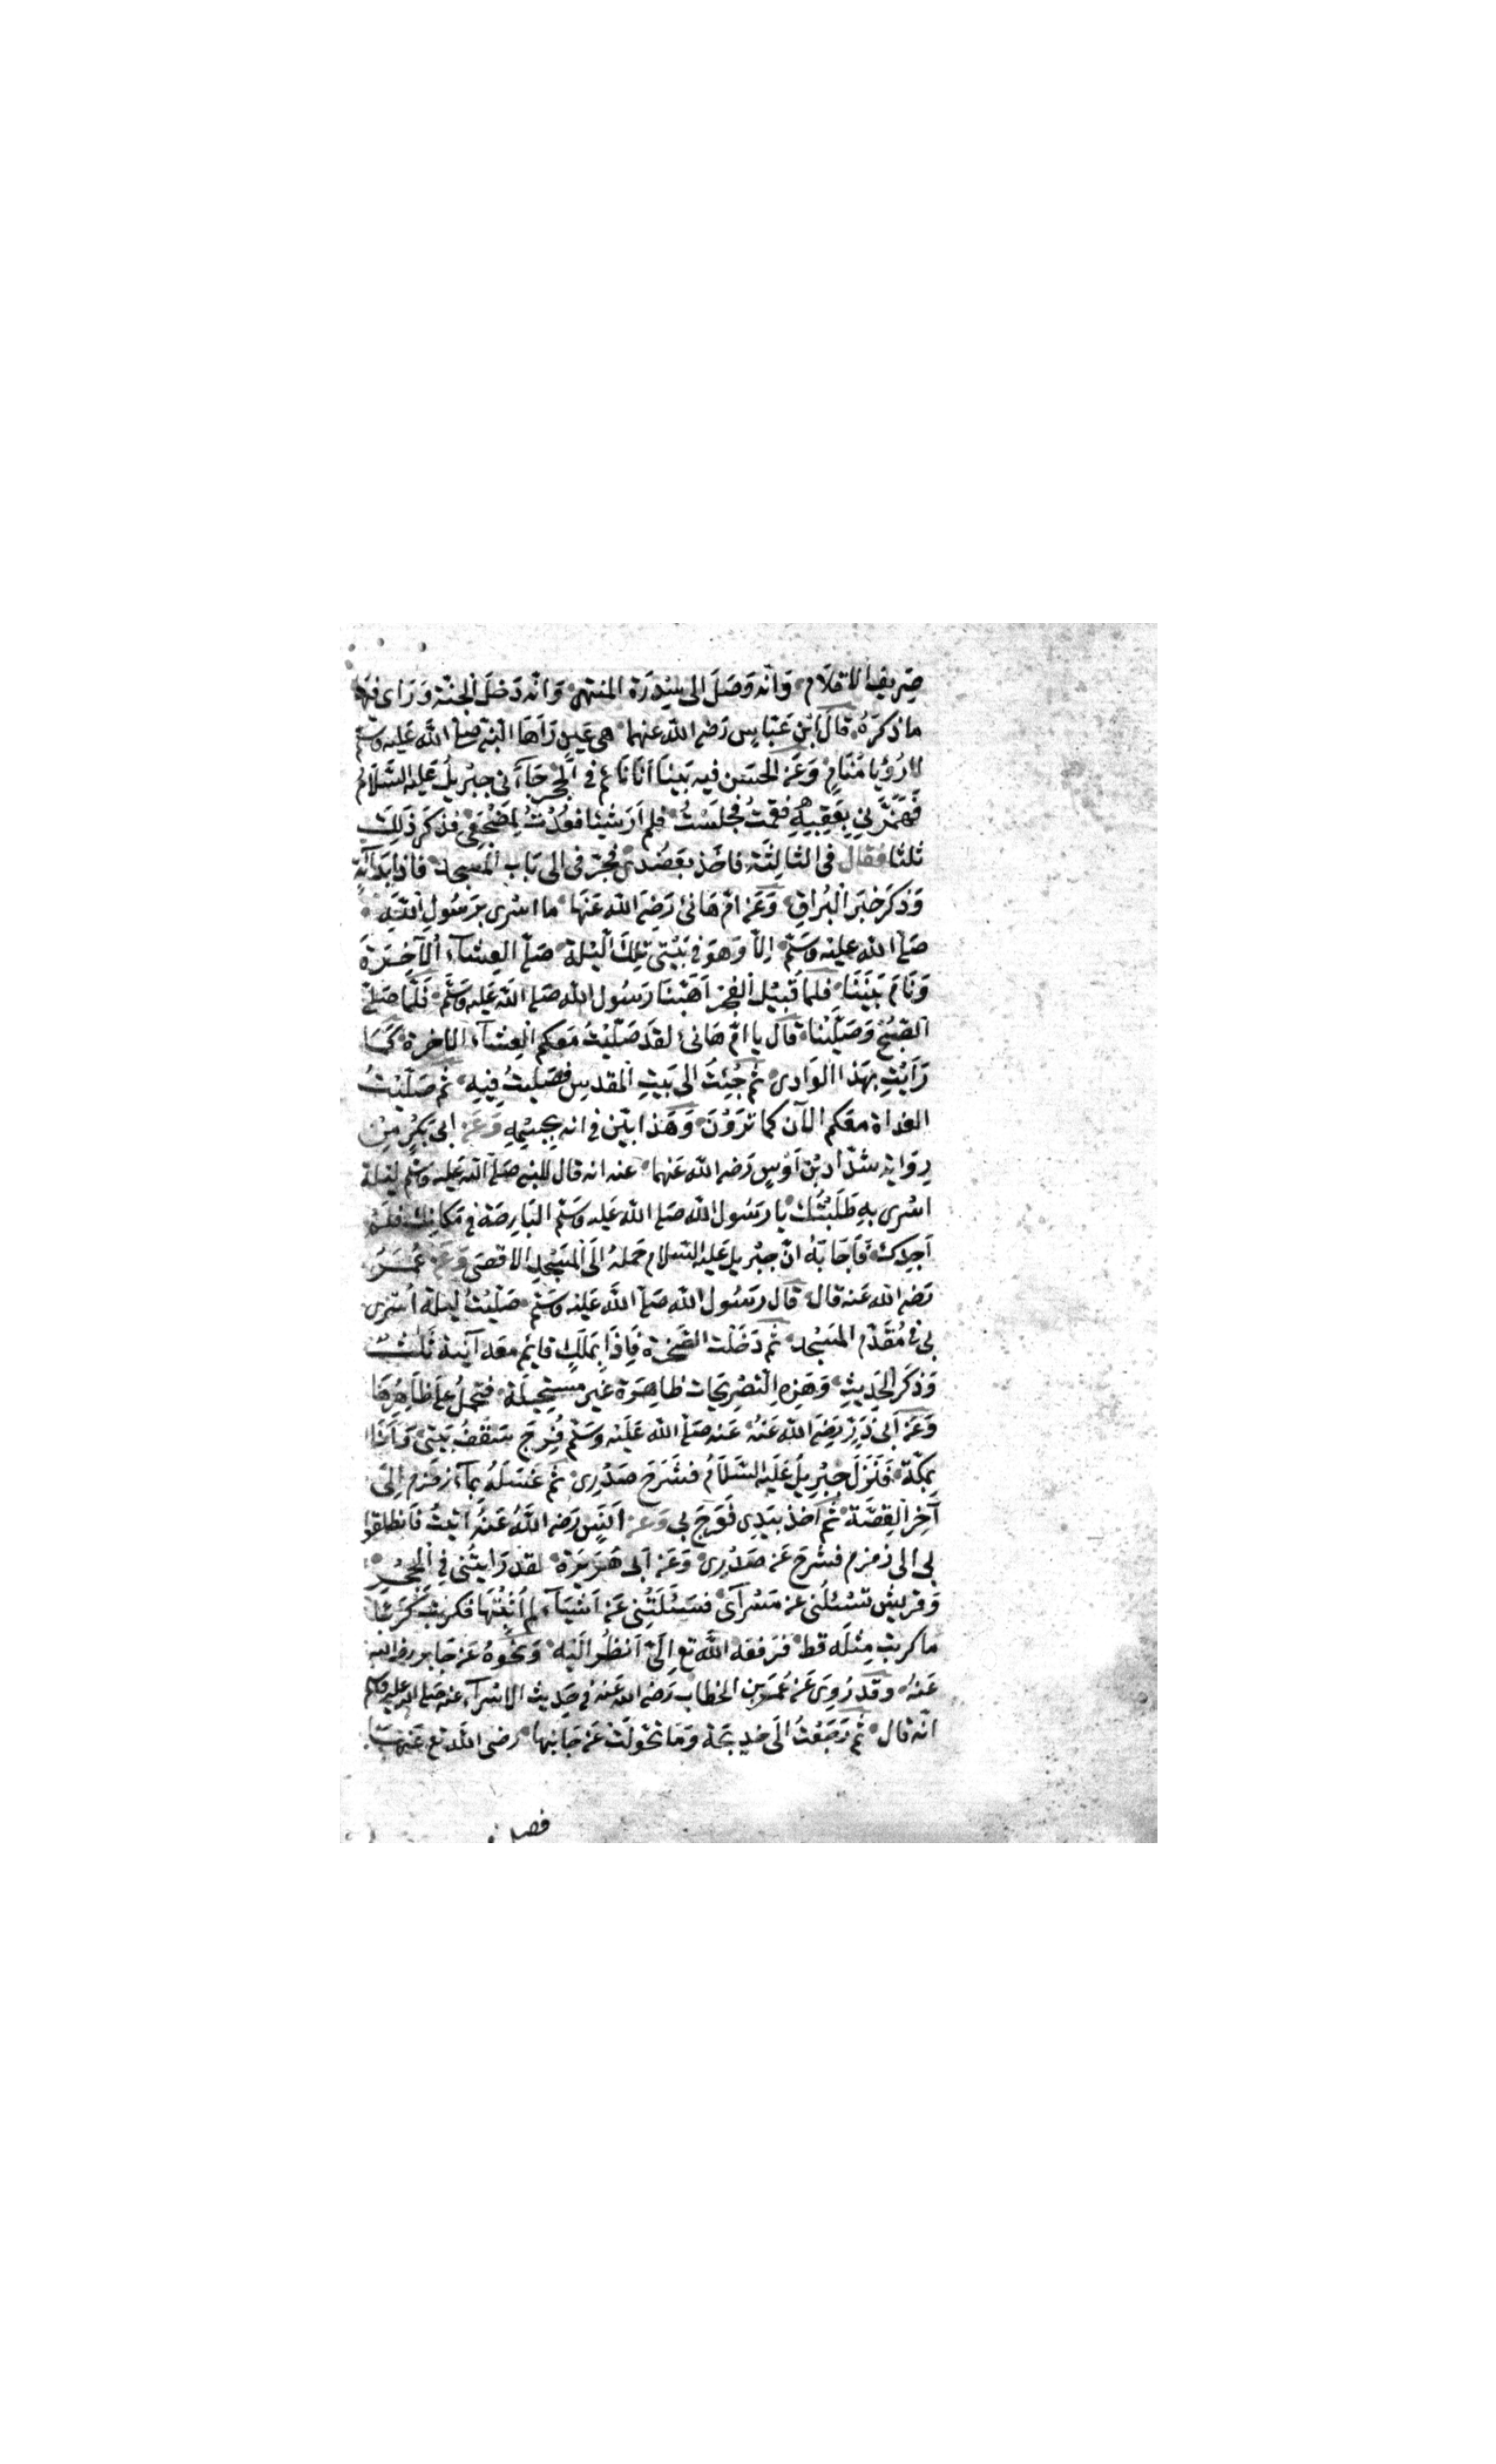 صَرِيفَ الاقلَام وَانّه وَصَلَ الى سِدرَة المنتهى وَانّه دَخلَ الجنّة وَرَاى فيهَا
ما ذكرَهُ قالَ ابْن عَبّاسٍ رَضى الله عنهما هى عَين رَآهَا النّبى صلى الله عَليه وسَلم
لا رُؤيا مَنَامٍ وَعَن الحسَن فيه بَينَا انَا نائم فى الحِجْر جَآءَنى جبْريلُ عَليه السَّلام
فَهَمَزَنى بِعَقِبِهِ فقمْتُ فجلَسْتُ فلم اَرَ شيْئا فعُدْتُ لِمضْجَعِى فذكَرَ ذَلِكَ
ثلثا فقال فى الثالِثَة فاخَذ بعَضُدى فجرّنى الى بَاب المَسجد فاذا بدآبّةٍ
وَذكَرَ خَبَر الْبُراقِ وَعَن امّ هَانئ رَضىَ الله عَنهَا ما اسْرى برَسُولِ اللّهِ
صَلى الله عليْه وسَلّم اِلّا وَهوَ فى بَيْتى تِلكَ الّيْلَة صَلّى العِشآءَ اْلآخِرَةَ
وَنَامَ بَيْنَنَا فلمّا قُبَيْل الْفجْر اَهَبّنَا رَسُول الله صَلى الله عَليْه وَسَلّم فَلَمّا صَلّى
الصُّبْحَ وَصَلّيْنَا قالَ يا امّ هَانئ لقدَ صَلّيْتُ مَعَكم العِشآءَ الاخرة كمَا
رَاَيْتِ بهَذا الوَادى ثم جِئتُ الى بَيتِ المقدسِ فصَلّيتُ فيهِ ثم صَلّيْتُ
الغداة معَكم الآن كما تَرَوْنَ وَهَذا بيّن فى انه بِجسْمِهِ وَعَن ابى بَكْرٍ مِن
رِوَاية شدّادِ بْن اَوْسٍ رَضى الله عَنهما عنه انه قال للنبى صَلى الله عَليه وسَلم ليْلة
اسْرى بهِ طَلَبْتُك يا رَسُول الله صَلى الله عَليه وَسَلّم البَارِحَة فى مَكانِك فلم
اَجِدْك فَاَجَابَهُ انّ جِبْريلَ عَليهِ السّلام حَملهُ الَى الْمَسْجِدِ الاقصَى وَعَن عُمَرَ
رَضى الله عَنه قال قالَ رسَولُ الله صَلى الله عَليْه وسَلم صَلّيْتُ ليلَة اُسْرى
بى فى مُقَدّم المَسْجد ثم دَخَلْت الصّخرَة فَاِذَا بمَلَكٍ قائم معَه آنية ثَلثٌ
وَذكَر الحَديثِ وَهَذه التّصْرِيحَات ظاهِرَة غير مُسْتحِيلَة فتحملُ على ظَاهِرِهَا
وَعَن اَبى ذَرٍّ رَضِىَ اللهُ عَنهُ عَنه صَلى الله عَلَيْه وسَلم فُرِجَ سَقْفُ بَيْتى وَاَنَا
بمكّة فَنَزَلَ جِبْرِيلُ عَلَيْه السَّلَامُ فشَرَحَ صَدْرِى ثم غَسَلَهُ بمآء زمْزم اِلى
آخِر القِصّة ثم اَخذ بيَدِى فَعَرَجَ بى وَعَن اَنَسٍ رَضى اللهُ عَنهُ اُتيتُ فَانطلقوا
بى الى زمزم فشرحَ عَن صَدْرى وَعَن اَبى هُرَيرَة لقد رَايتُنى فى الحِجْر
وَقريْش تسْئلنى عن مَسْراىَ فسَئلَتْنِى عَن اَشيَآءَ لم اُثْبِتْهَا فكُربْت كَرْبًا
ما كربْت مِثلَه قط فرَفعَه اللَّه تع اِلىّ اَنظُر الَيْه وَنحْوهُ عَن جَابر رضى الله
عَنهُ وقَد رُوِىَ عَن عُمَر بن الخطابِ رَضى الله عَنه فى حَدِيث الاسْرآء عنه صلى الله عليه وسلم
انّه قال ثم رَجَعْتُ الَى خدِيجَة وَمَا تحَوّلَتْ عَن جَانِبهَا رضى الله تع عَنهَا
فصل